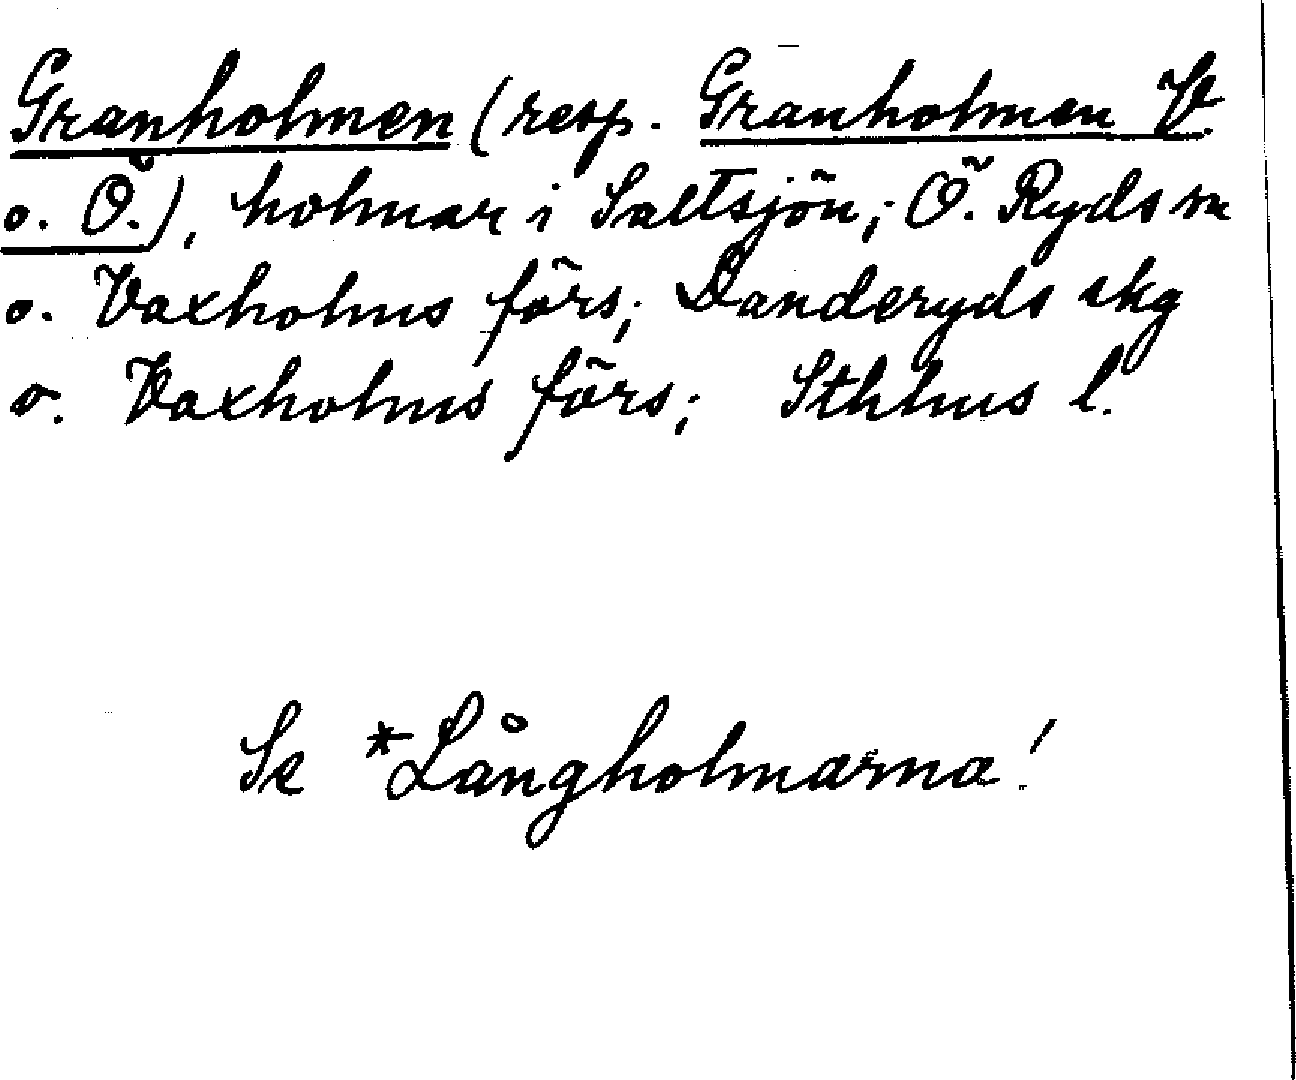 Granholmen (resp. Granholmen V.
o. Ö.), holmar i Saltsjön; Ö. Ryds sn
o. Vaxholms förs; Danderyds skg
o. Vaxholms förs; Sthlms l.
Se *Långholmarna!